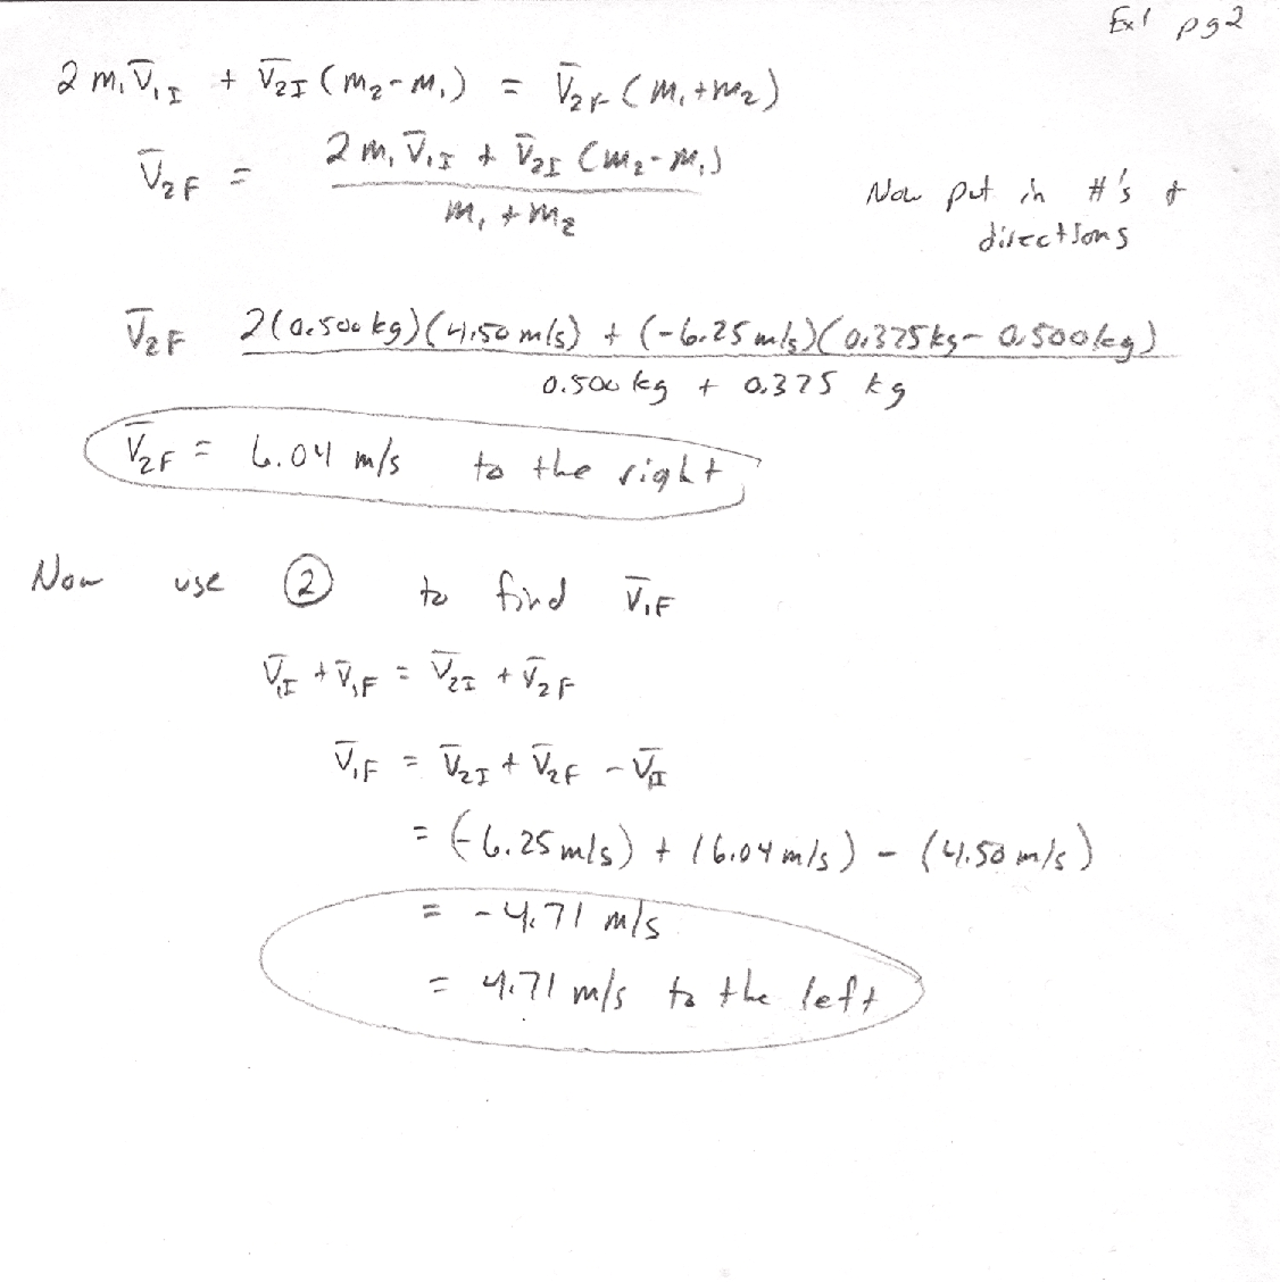 Ex1 pg2
2 m₁V̄₁I + V̄₂I (m₂-m₁) = V̄₂F (m₁+m₂)
V̄₂F = 2 m₁ V̄₁I + V̄₂I (m₂-m₁)
m₁ + m₂
Now put in #'s +
directions
V̄₂F 2(0.500 kg)(4.50 m/s) + (-6.25 m/s)(0.375 kg - 0.500 kg)
0.500 kg + 0.375 kg
V̄₂F = 6.04 m/s to the right
Now use ② to find V̄₁F
V̄₁I + V̄₁F = V̄₂I + V̄₂F
V̄₁F = V̄₂I + V̄₂F - V̄₁I
= (-6.25 m/s) + (6.04 m/s) - (4.50 m/s)
= -4.71 m/s
= 4.71 m/s to the left